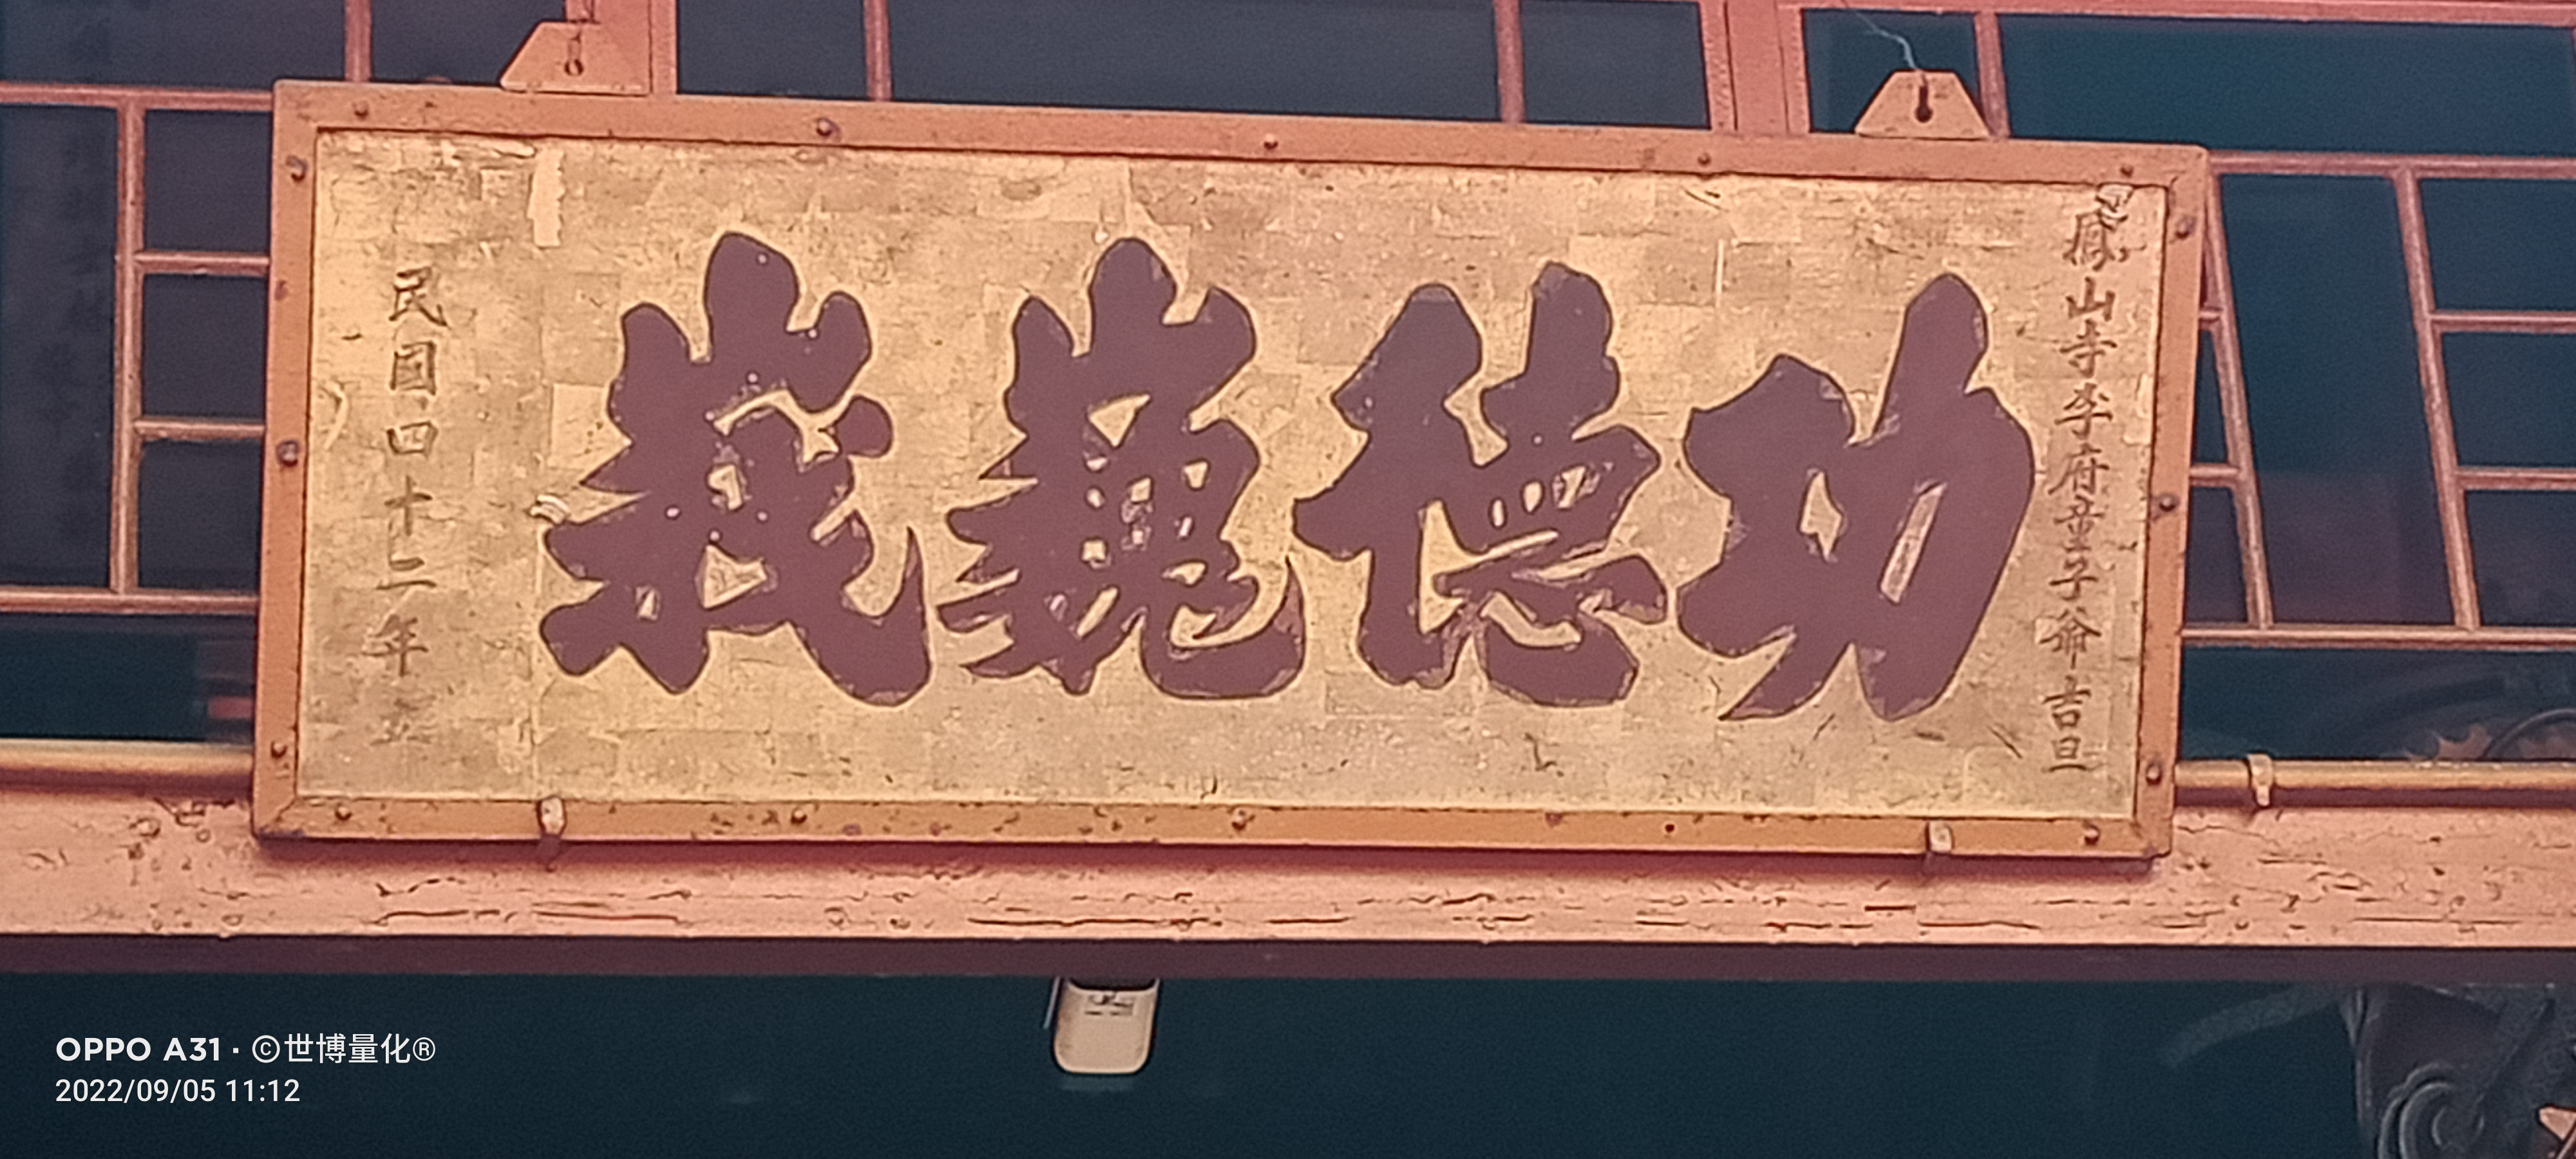 鳳山寺李府童子爺吉旦
功德巍峩
民國四十二年立
OPPO A31 · ©世博量化®
2022/09/05 11:12